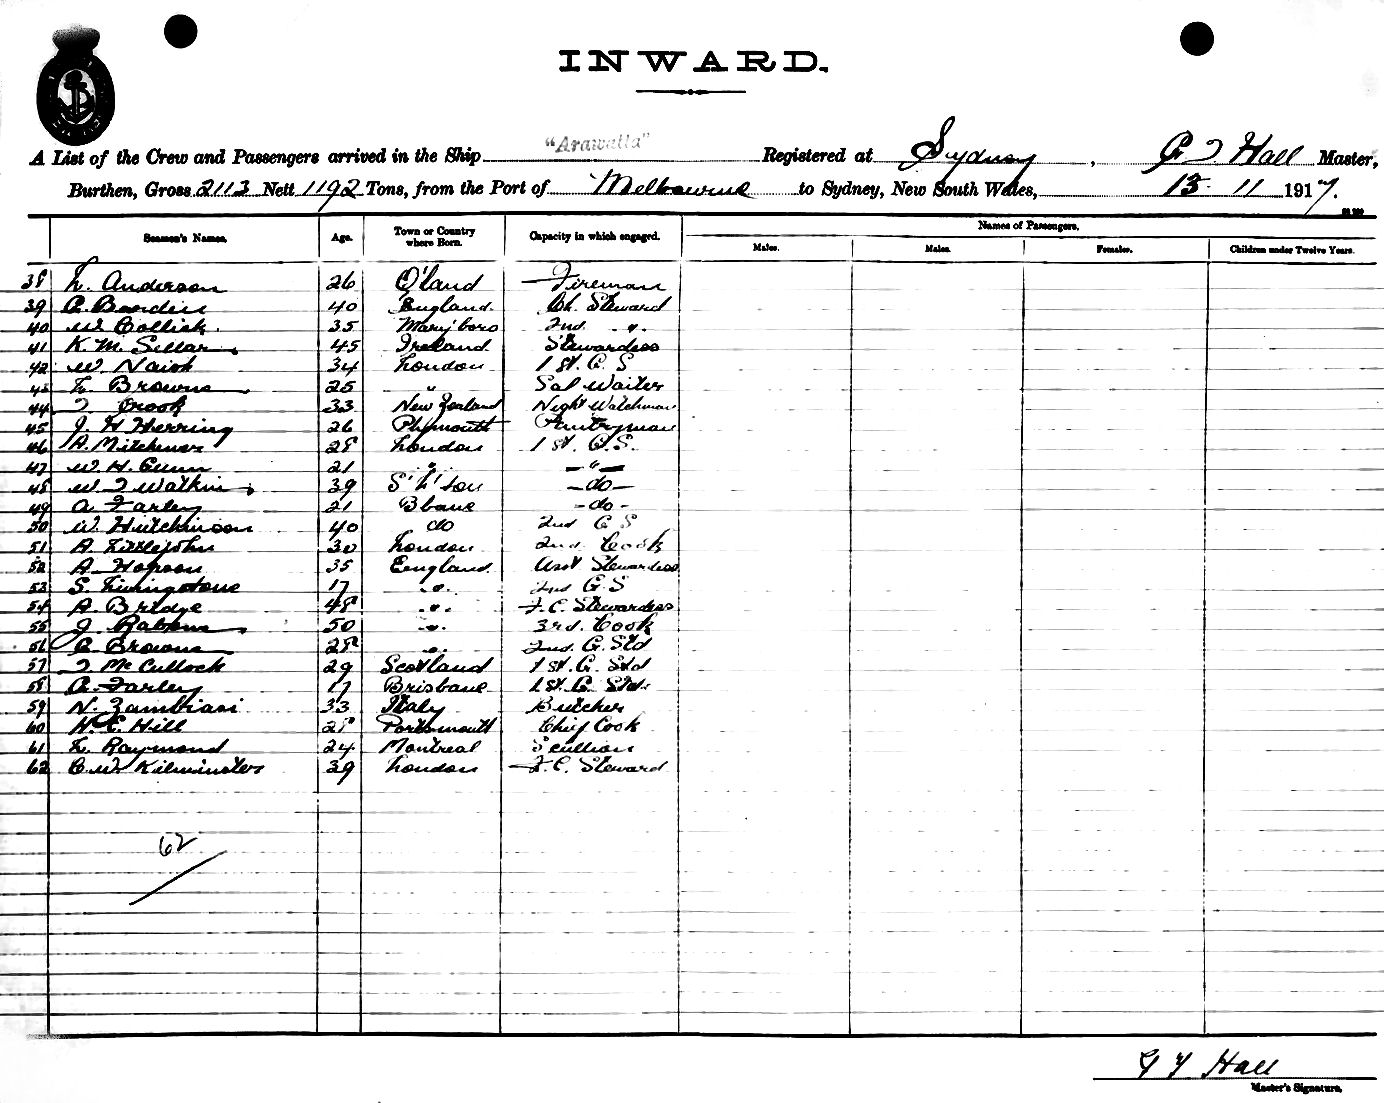 INWARD.
A List of the Crew and Passengers arrived in the Ship "Arawatta" Registered at Sydney, G T Hall Master,
Burthen, Gross 2113 Nett 1192 Tons, from the Port of Melbourne to Sydney, New South Wales, 13. 11 1917.
Seamen's Names. Age. Town or Country where Born. Capacity in which engaged. Names of Passengers.
Males. Males. Females. Children under Twelve Years.
38 L. Anderson 26 Q'land Fireman
39 C. Bowden 40 England. Ch. Steward
40 W. Collick. 35 Mary'boro 2nd. ".
41 K. M. Sellars 45 Ireland Stewardess
42 W. Naish 34 London 1 st. C. S
43 L. Browne 25 " Sal Waiter
44 T Crook 33 New Zealand Night Watchman
45 J. H Herring 26 Plymouth Pantryman
46 A. Mitchener 28 London 1 st. C. S.
47 W. H. Gunn 21 " — " —
48 W. T Watkins 39 S'h'ton — do —
49 A Farley 21 Bbane - do -
50 W. Hutchinson 40 do 2nd C S
51 A. Littlejohn 30 London 2nd. Cook
52 A Hopson 35 England. Asst Stewardess
53 S. Livingstone 17 ". 2nd G. S
54 A. Bridge 48 ". F. C. Stewardess
55 J. 50 ". 3rd. Cook
56 C Browne 28 ". 2nd. G. Std
57 T McCullock 29 Scotland 1 st. G. Std
58 A. Farley 17 Brisbane 1 st. G. Std.
59 N. Zambiasi 33 Italy Butcher
60 H. E. Hill 28 Portsmouth Chief Cook
61 L. Raymond 24 Montreal Scullion
62 C. W. Kilminster 39 London F. C. Steward
62
G T Hall
Master's Signature.